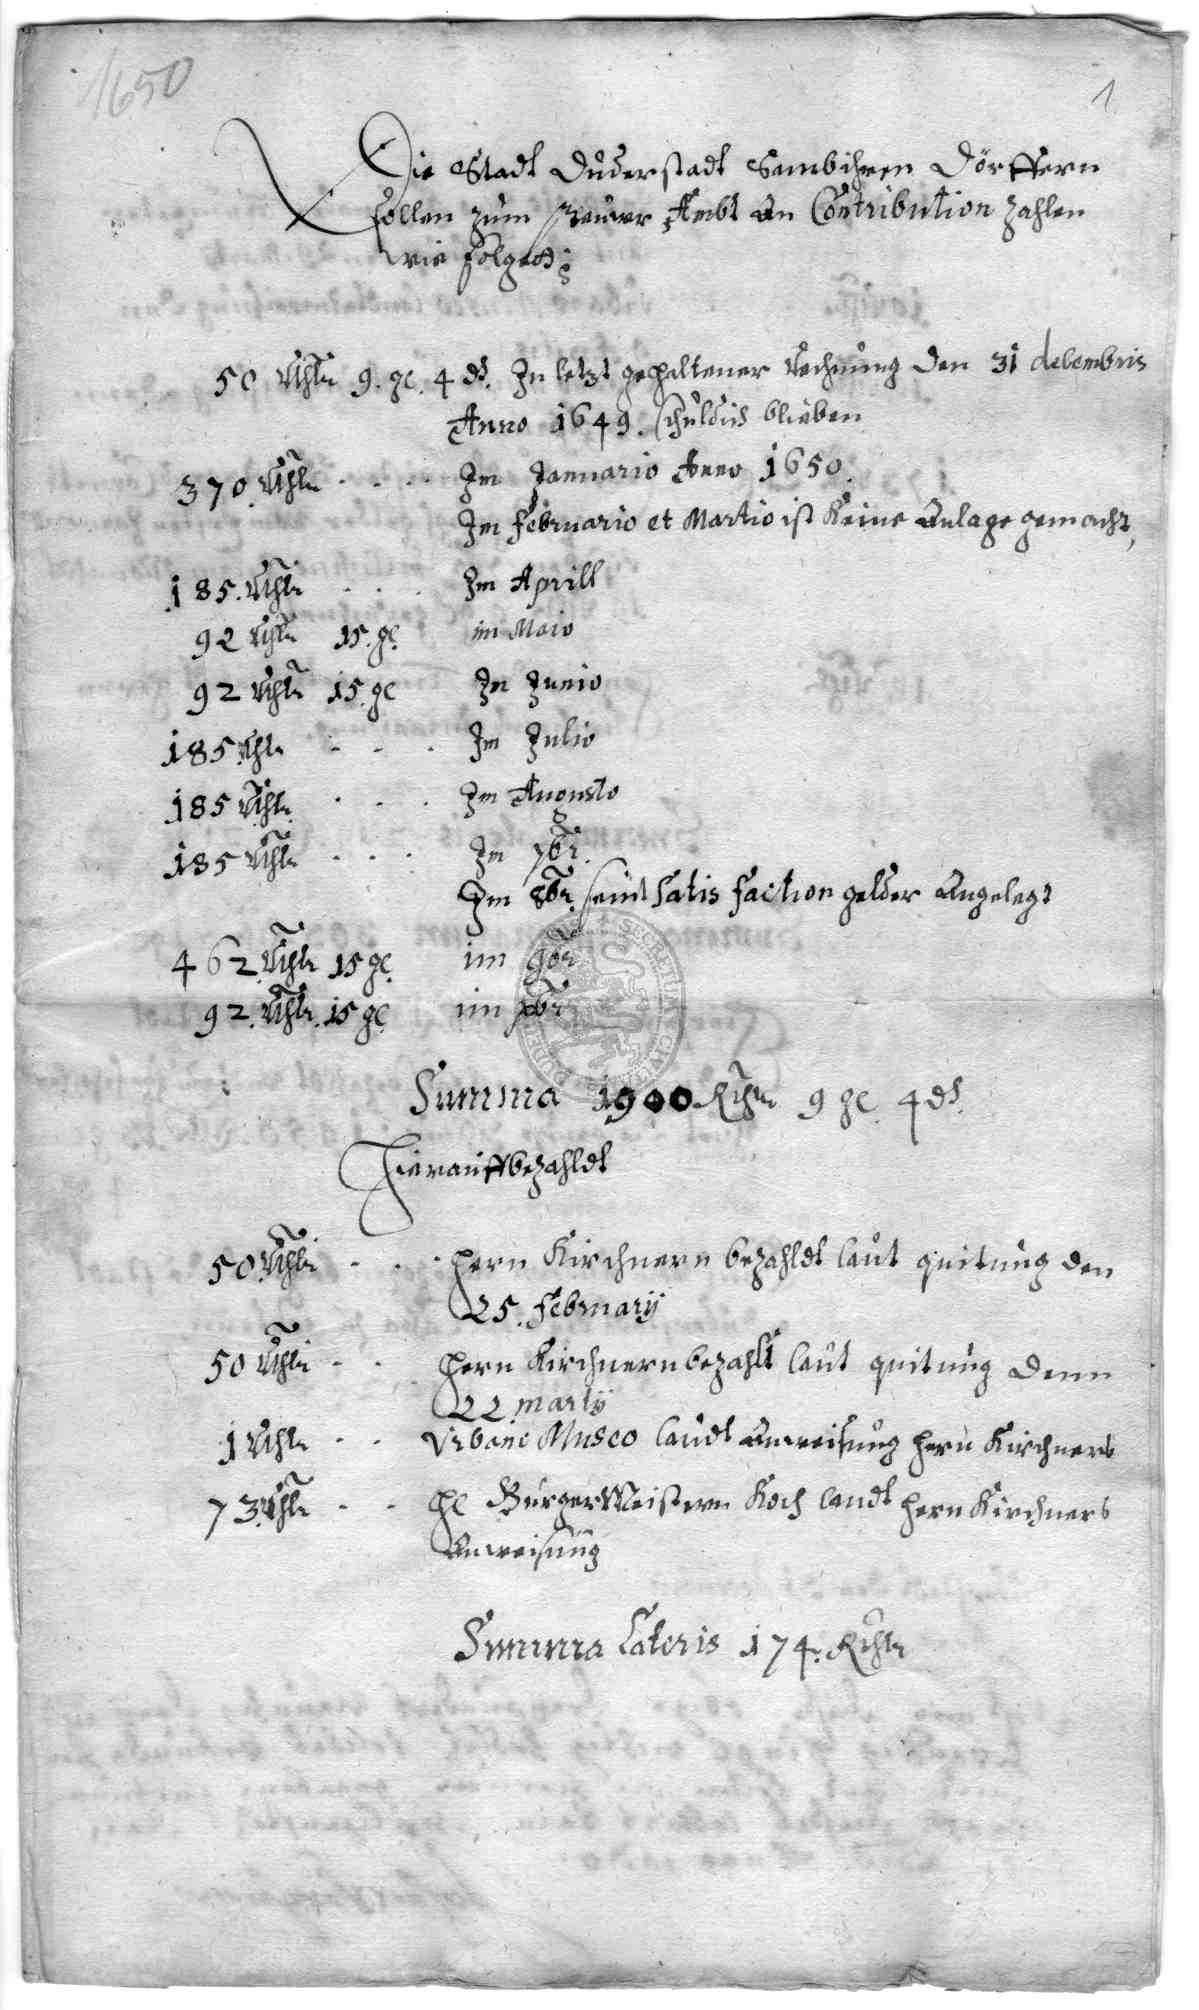 1650
1
Die Stadt Duderstadt Sambt ihren Dörffern
sollen zum Steuer Ambt An Contribution zahlen
wie folget:
50 Rthlr 9. gl. 4 ds. In letzt gehaltener Rechnung den 31 decembris
Anno 1649. schuldig blieben
370. Rthlr . . . . Im Januario Anno 1650.
Im Februario et Martio ist Keine Anlage gemacht,
185. Rthlr . . . Im Aprill
92 Rthlr 15. gl. im Maio
92 Rthlr 15. gl Im Junio
185 Rthlr . . . Im Julio
185 Rthlr . . . Im Augusto
185 Rthlr . . . Im 7br.
Im 8br. seint Satis faction gelder Angelegt
462. Rthlr 15 gl. im 9br
92. Rthlr. 15 gl. im xbr
Summa 1900 Rthlr 9 gl. 4 ds.
Hierauff bezahldt
50 Rthlr . . . hern Kirchnern bezahldt laut quitung den
25. February
50 Rthlr . . hern Kirchnern bezahlt laut quitung denn
22 marty
1 Rthlr . . Urbano Musco laudt Anweisung hern Kirchners
73 Rthlr . . hl BurgerMeistern Koch laudt hern Kirchners
Anweisung
Summa Lateris 174. Rthlr